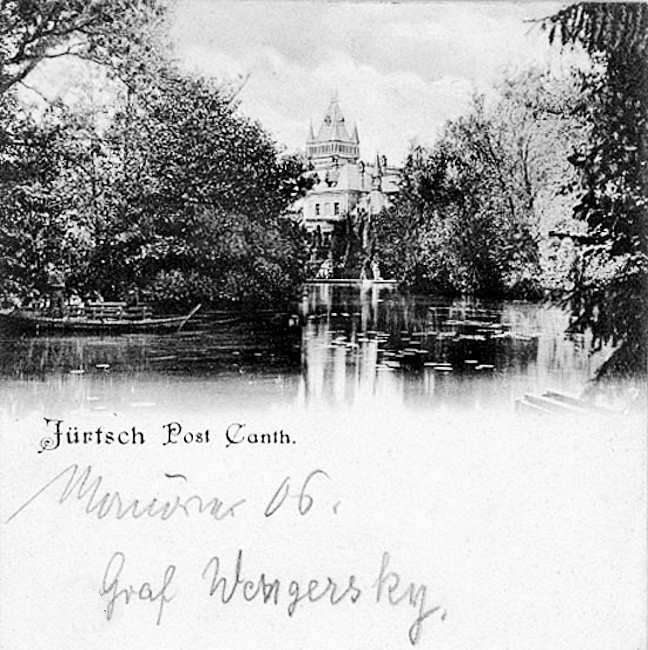 Jürtsch Post Canth.
Manöver 06.
Graf Wengersky.